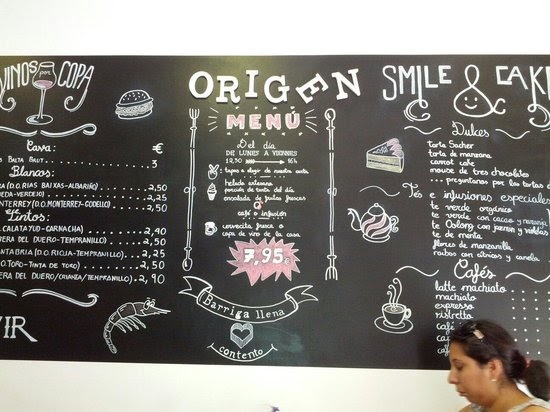 VINOS por COPA
Cava: €
BALTA BRUT 3
Blancos:
(D.O. RIAS BAIXAS-ALBARIÑO) 2,50
RUEDA-VERDEJO) 2,25
MONTERREY (D.O. MONTERREY-GODELLO) 2,50
Tintos:
CALATAYUD-GARNACHA) 2,40
RIBERA DEL DUERO-TEMPRANILLO) 2,50
CANTABRIA (D.O. RIOJA-TEMPRANILLO) 2,25
(D.O. TORO-TINTA DE TORO) 2,50
RIBERA DEL DUERO/CRIANZA/TEMPRANILLO) 2,90
ORIGEN
MENÚ
Del día
DE LUNES A VIERNES
12,30 16h
tapas a elegir de nuestra carta
helado artesano
porción de tarta del día
ensalada de frutas frescas
café o infusión
cervecita fresca o
copa de vino de la casa
7,95€
Barriga llena
contento
SMILE & CAKE
Dulces
tarta Sacher
tarta de manzana
carrot cake
mouse de tres chocolates
... preguntanos por las tartas
Tés e infusiones especiales
te verde orgánico
te verde con cacao y naranja
te Oolong con jazmín y
te de menta
flores de manzanilla
rooibos con cítricos y canela
Cafés
latte machiato
machiato
espresso
ristretto
café
café